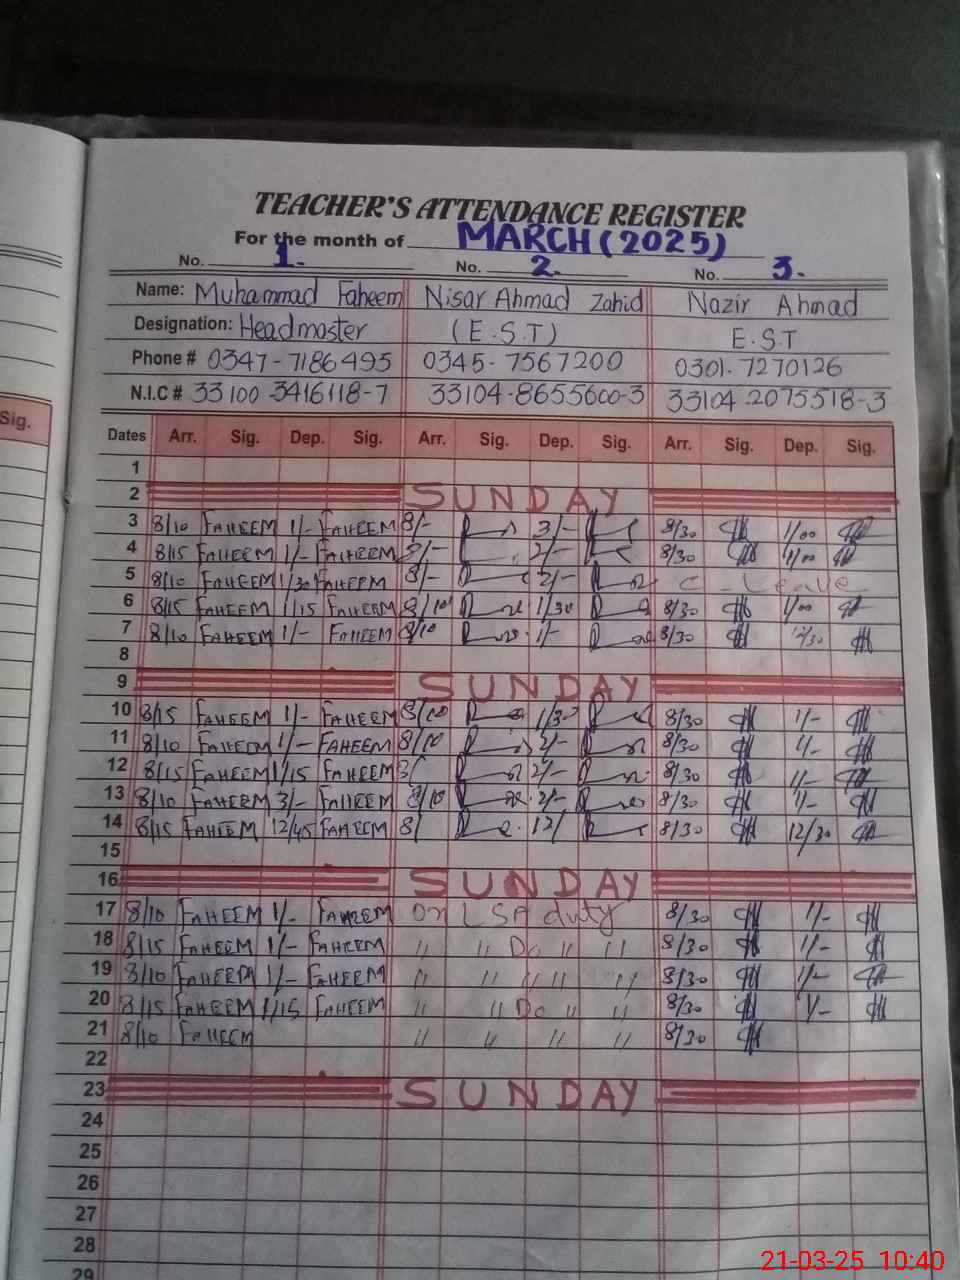 TEACHER'S ATTENDANCE REGISTER
For the month of MARCH (2025)
No. 1. No. 2. No. 3.
Name: Muhammad Faheem Nisar Ahmad Zahid Nazir Ahmad
Designation: Headmaster (E.S.T) E.S.T
Phone # 0347-7186495 0345-7567200 0301-7270126
N.I.C # 33100-3416118-7 33104-8655600-3 33104-2075518-3
Sig.
Dates Arr. Sig. Dep. Sig. Arr. Sig. Dep. Sig. Arr. Sig. Dep. Sig.
1
2 SUNDAY
3 8/10 FAHEEM 1/- FAHEEM 8/- 3/- 8/30 1/00
4 8/15 FAHEEM 1/- FAHEEM 8/- 2/- 8/30 1/00
5 8/10 FAHEEM 1/30 FAHEEM 8/- 2/- C - Leave
6 8/15 FAHEEM 1/15 FAHEEM 8/10 1/30 8/30 1/00
7 8/10 FAHEEM 1/- FAHEEM 8/10 1/- 8/30 12/30
8
9 SUNDAY
10 8/15 FAHEEM 1/- FAHEEM 8/10 1/30 8/30 1/-
11 8/10 FAHEEM 1/- FAHEEM 8/10 2/- 8/30 1/-
12 8/15 FAHEEM 1/15 FAHEEM 8/ 2/- 8/30 1/-
13 8/10 FAHEEM 3/- FAHEEM 8/10 2/- 8/30 1/-
14 8/15 FAHEEM 12/45 FAHEEM 8/ 12/ 8/30 12/30
15
16 SUNDAY
17 8/10 FAHEEM 1/- FAHEEM On LSA duty 8/30 1/-
18 8/15 FAHEEM 1/- FAHEEM " " Do " " 8/30 1/-
19 8/10 FAHEEM 1/- FAHEEM " " " " " 8/30 1/-
20 8/15 FAHEEM 1/15 FAHEEM " " Do " " 8/30 1/-
21 8/10 FAHEEM " " " " 8/30
22
23 SUNDAY
24
25
26
27
28
29
21-03-25 10:40